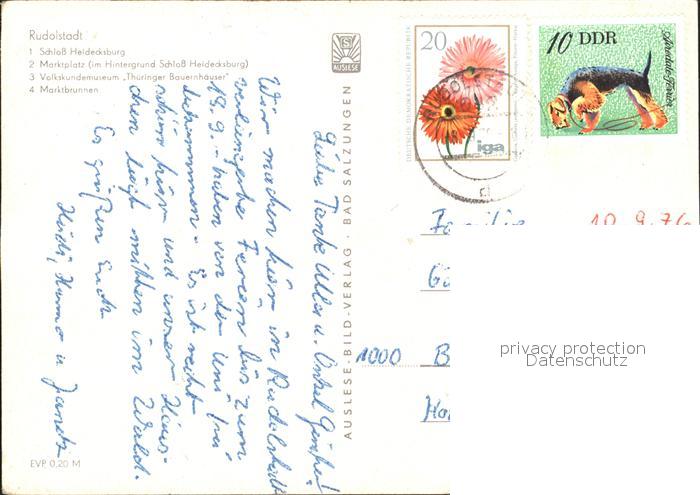 Rudolstadt
1 Schloß Heidecksburg
2 Marktplatz (im Hintergrund Schloß Heidecksburg)
3 Volkskundemuseum „Thüringer Bauernhäuser"
4 Marktbrunnen
AUSLESE
20
DEUTSCHE DEMOKRATISCHE REPUBLIK
iga
10 DDR
Airedale-Terrier
Liebe Tante Ulla u. Onkel Günther!
Wir machen hier in Rudolstadt
verlängerte Ferien bis zum
19.9. – haben von der Uni frei
bekommen. Es ist recht
schön hier und unser Häus-
chen liegt mitten im Wald.
Es grüßen Euch
Heidi, u
AUSLESE-BILD-VERLAG · BAD SALZUNGEN
Familie
10.9.76
1000 B
privacy protection
Datenschutz
EVP 0,20 M